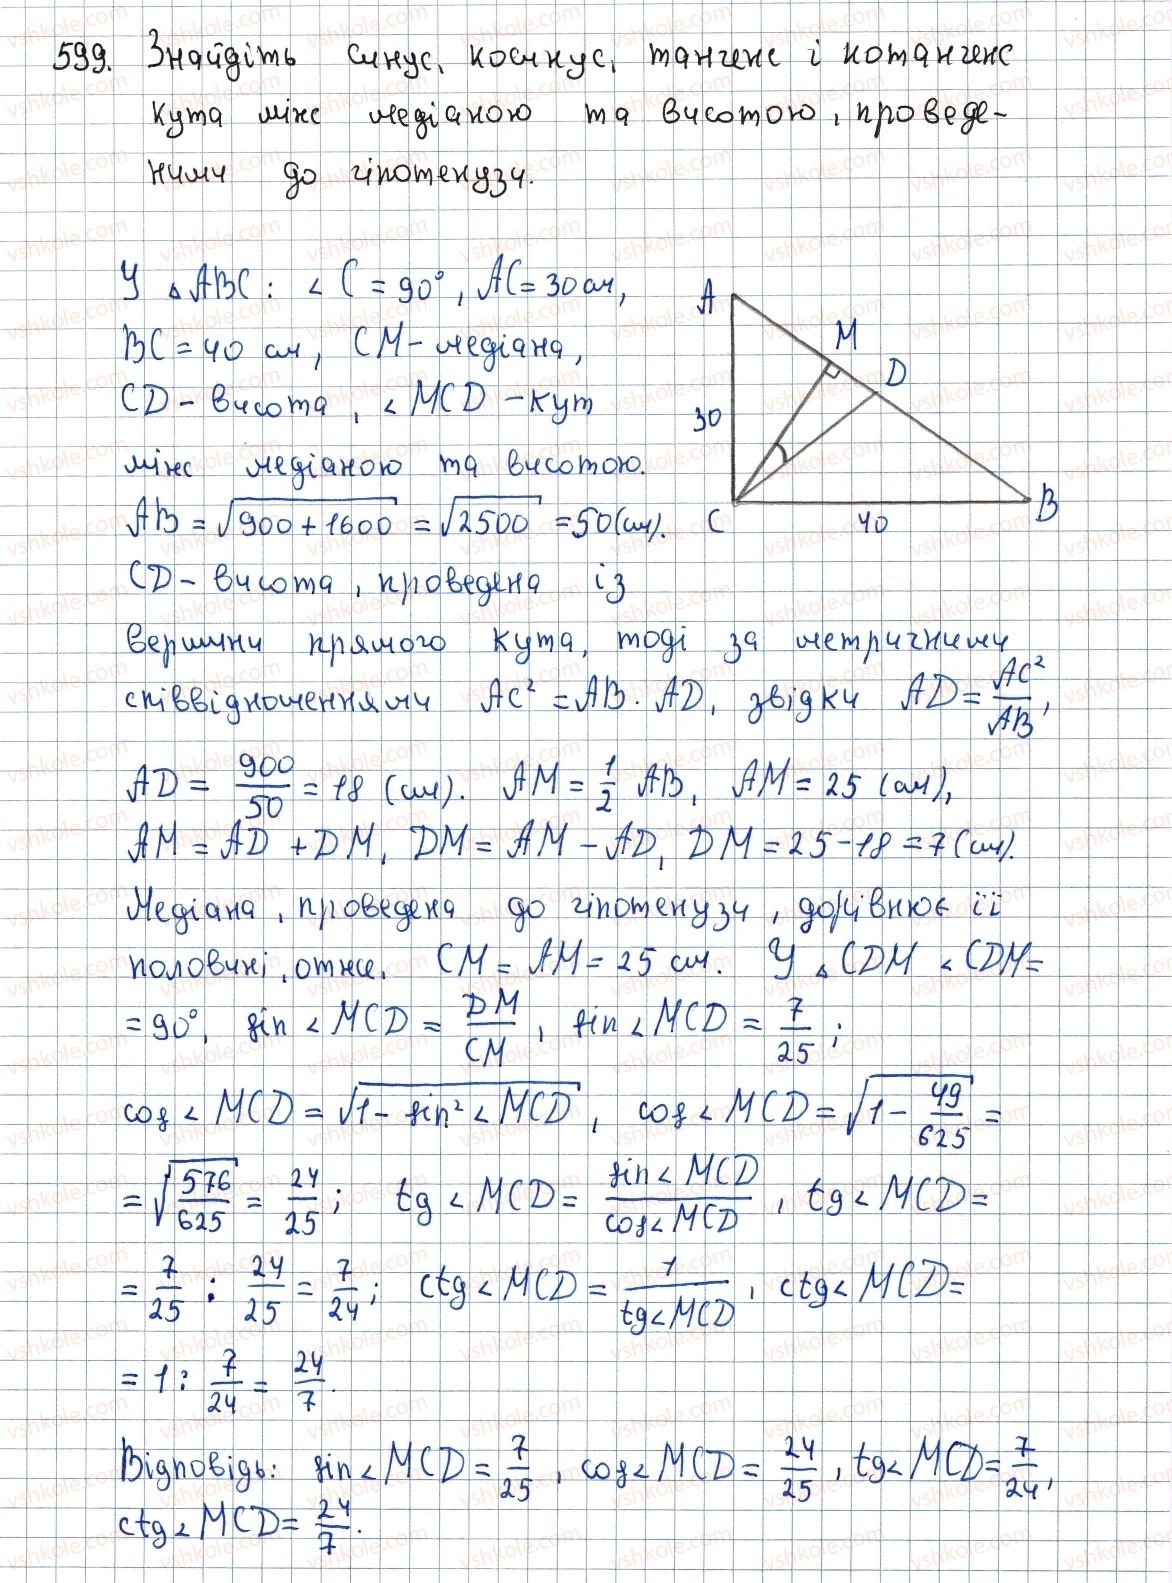 599. Знайдіть синус, косинус, тангенс і котангенс
кута між медіаною та висотою, проведе-
ними до гіпотенузи.
У △ABC: ∠C = 90°, AC = 30 см,
BC = 40 см, CM - медіана,
CD - висота, ∠MCD - кут
між медіаною та висотою.
A
M
D
30
C
40
B
AB = √(900 + 1600) = √2500 = 50 (см).
CD - висота, проведена із
вершини прямого кута, тоді за метричними
співвідношеннями AC² = AB · AD, звідки AD = AC²/AB,
AD = 900/50 = 18 (см). AM = 1/2 AB, AM = 25 (см),
AM = AD + DM, DM = AM - AD, DM = 25 - 18 = 7 (см).
Медіана, проведена до гіпотенузи, дорівнює її
половині, отже, CM = AM = 25 см. У △CDM ∠CDM =
= 90°, sin∠MCD = DM/CM, sin∠MCD = 7/25;
cos∠MCD = √(1 - sin²∠MCD), cos∠MCD = √(1 - 49/625) =
= √(576/625) = 24/25; tg∠MCD = sin∠MCD/cos∠MCD, tg∠MCD =
= 7/25 : 24/25 = 7/24; ctg∠MCD = 1/tg∠MCD, ctg∠MCD =
= 1 : 7/24 = 24/7.
Відповідь: sin∠MCD = 7/25, cos∠MCD = 24/25, tg∠MCD = 7/24,
ctg∠MCD = 24/7.
vshkole.com